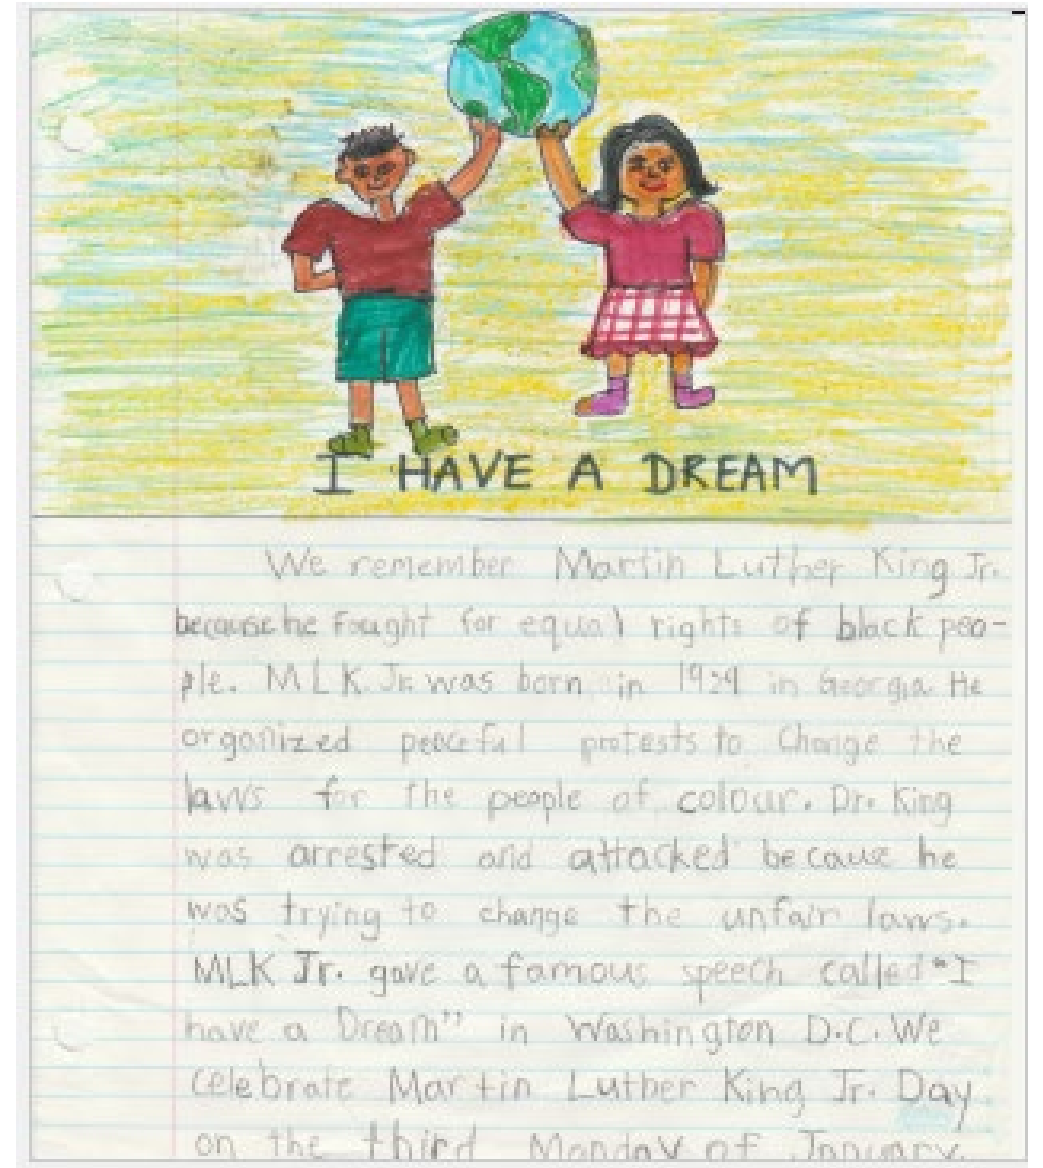 I HAVE A DREAM
We remember Martin Luther King Jr.
because he fought for equal rights of black peo-
ple. MLK Jr. was born in 1929 in Georgia. He
organized peaceful protests to Change the
laws for the people of colour. Dr. King
was arrested and attacked becaue he
was trying to change the unfair laws.
MLK Jr. gave a famous speech called "I
have a Dream" in Washington D.C. We
celebrate Martin Luther King Jr. Day
on the third Monday of January.